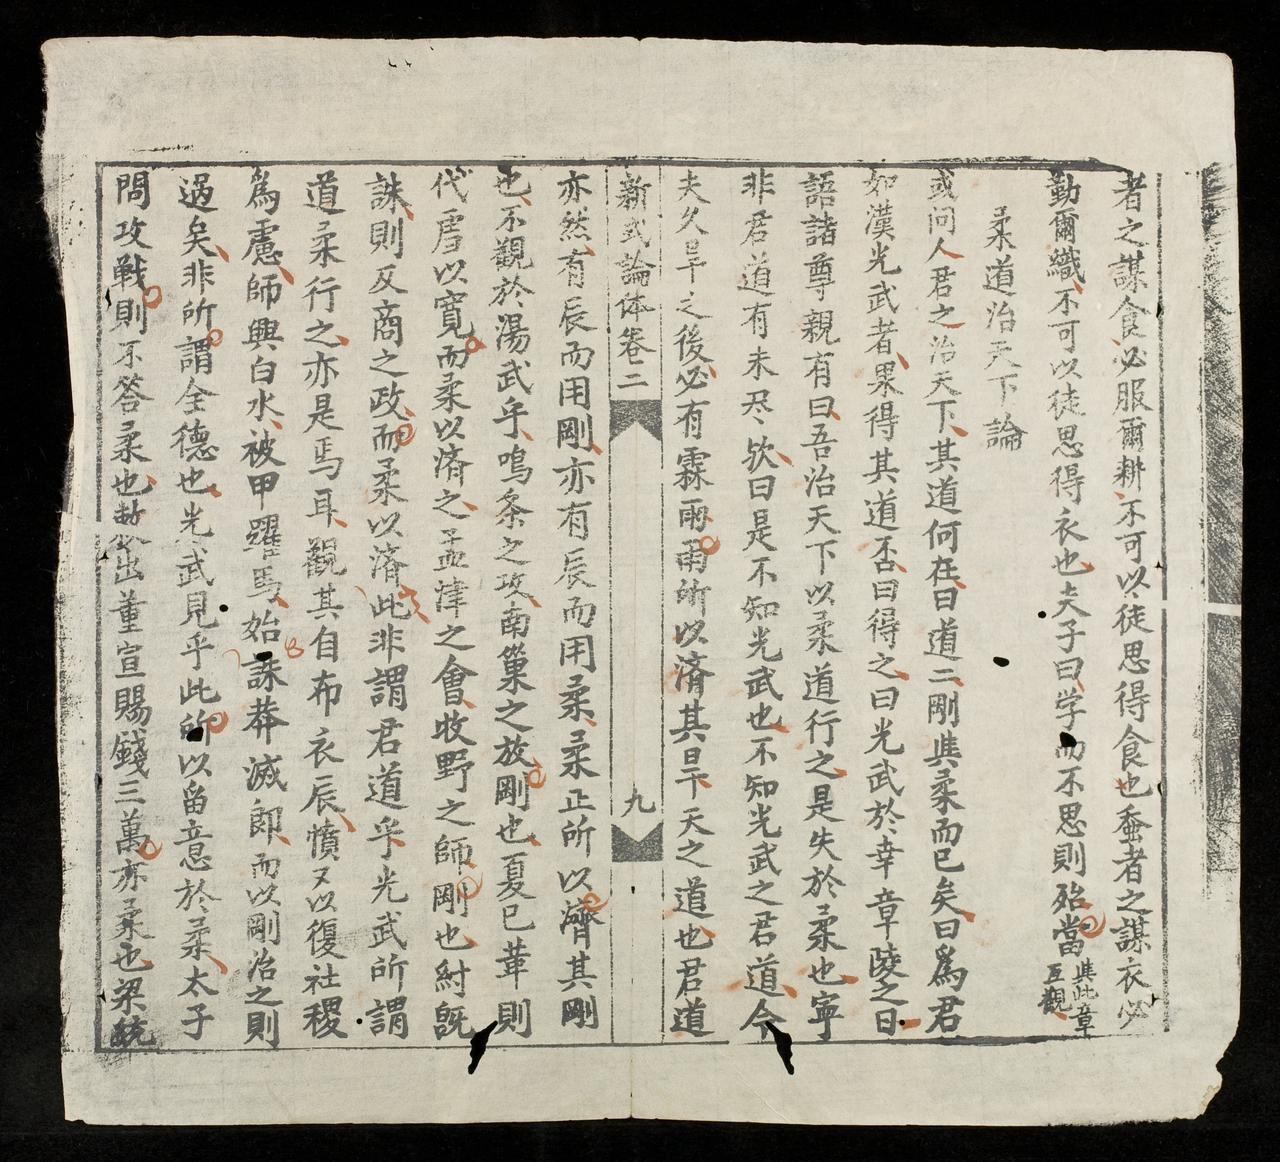 者之謀食必服爾耕不可以徒思得食也蚕者之謀衣必
勤爾織不可以徒思得衣也夫子曰学而不思則殆當
㠯此章
互觀
柔道治天下論
或问人君之治天下其道何在曰道二剛㠯柔而已矣曰爲君
如漢光武者果得其道否曰得之曰光武於幸章陵之日
語諸尊親有曰吾治天下以柔道行之是失於柔也寧
非君道有未尽欤曰是不知光武也不知光武之君道今
夫久旱之後必有霖雨雨所以済其旱天之道也君道
新式論体卷二
九
亦然有辰而用剛亦有辰而用柔柔正所以濟其剛
也不觀於湯武乎鳴条之攻南巢之放剛也夏已革則
代虐以寬而柔以済之孟津之會牧野之師剛也紂既
誅則反商之政而柔以済此非謂君道乎光武所謂
道柔行之亦是焉耳觀其自布衣辰憤又以復社稷
爲慮師興白水被甲躍馬始誅莽滅郎而以剛治之則
過矣非所謂全德也光武見乎此所以留意於柔太子
問攻戦則不答柔也赦出董宣賜錢三萬亦柔也梁統